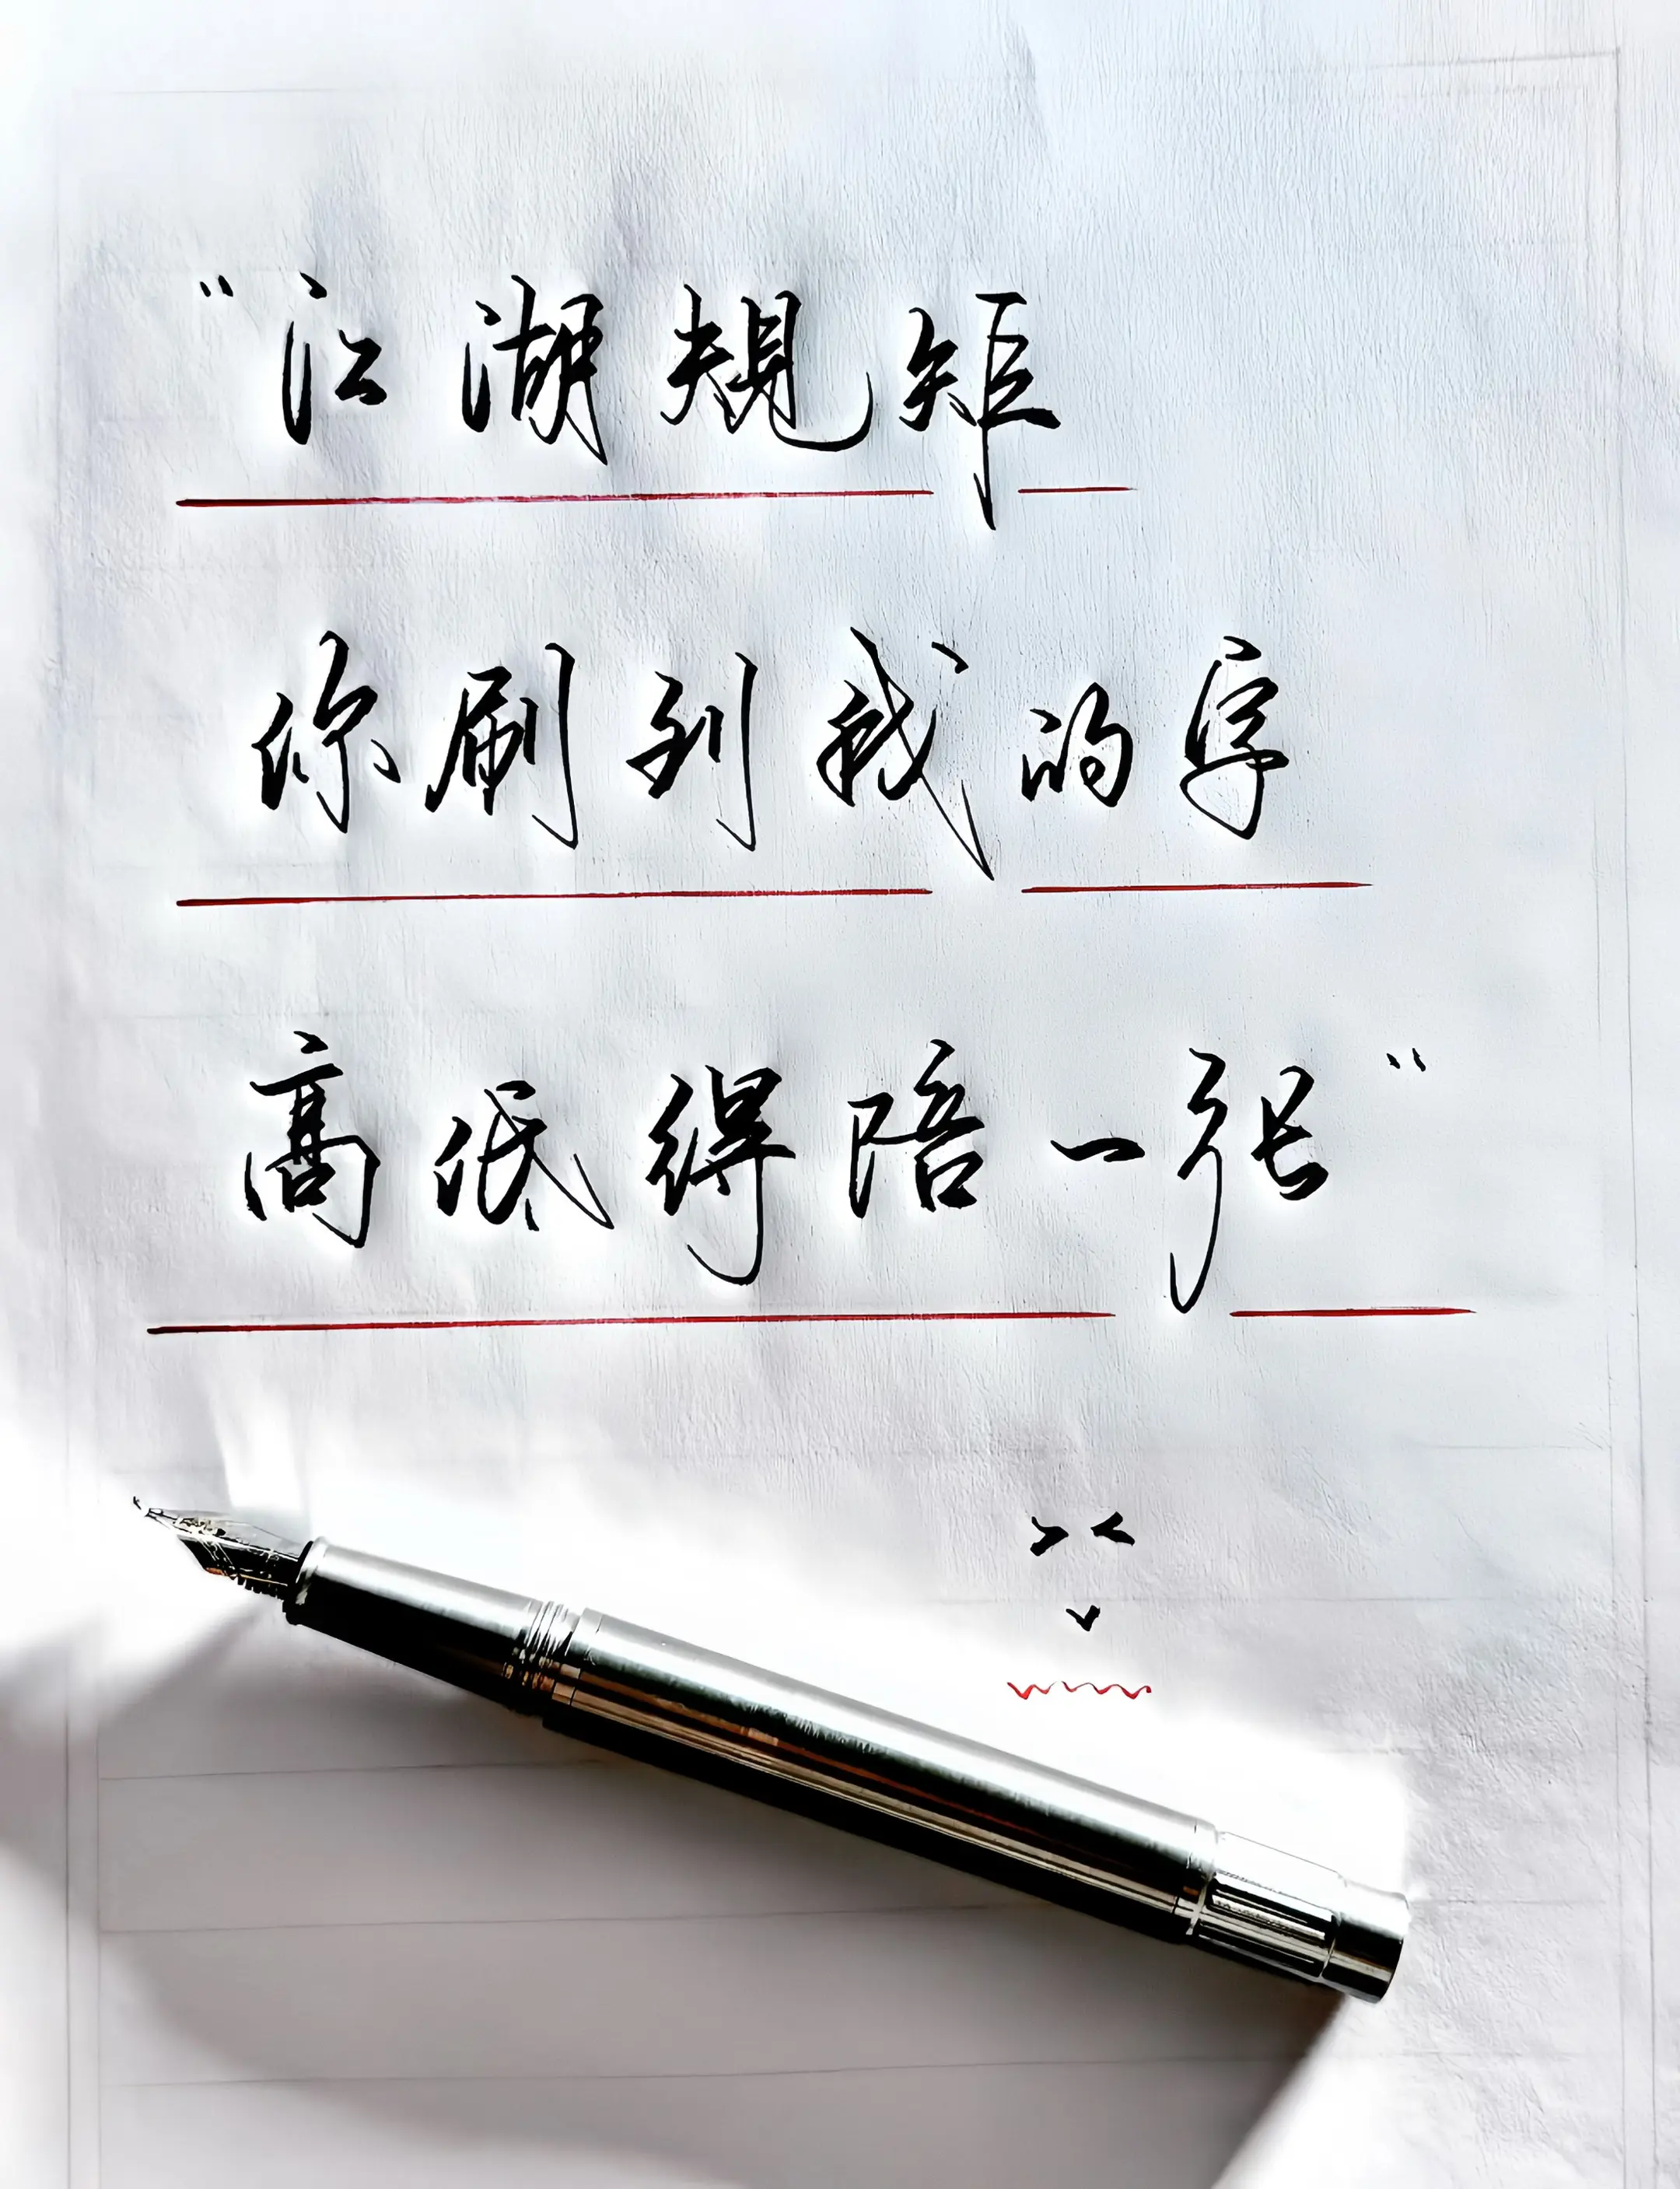 “江湖規矩
你刷到我的字
高低得陪一张”